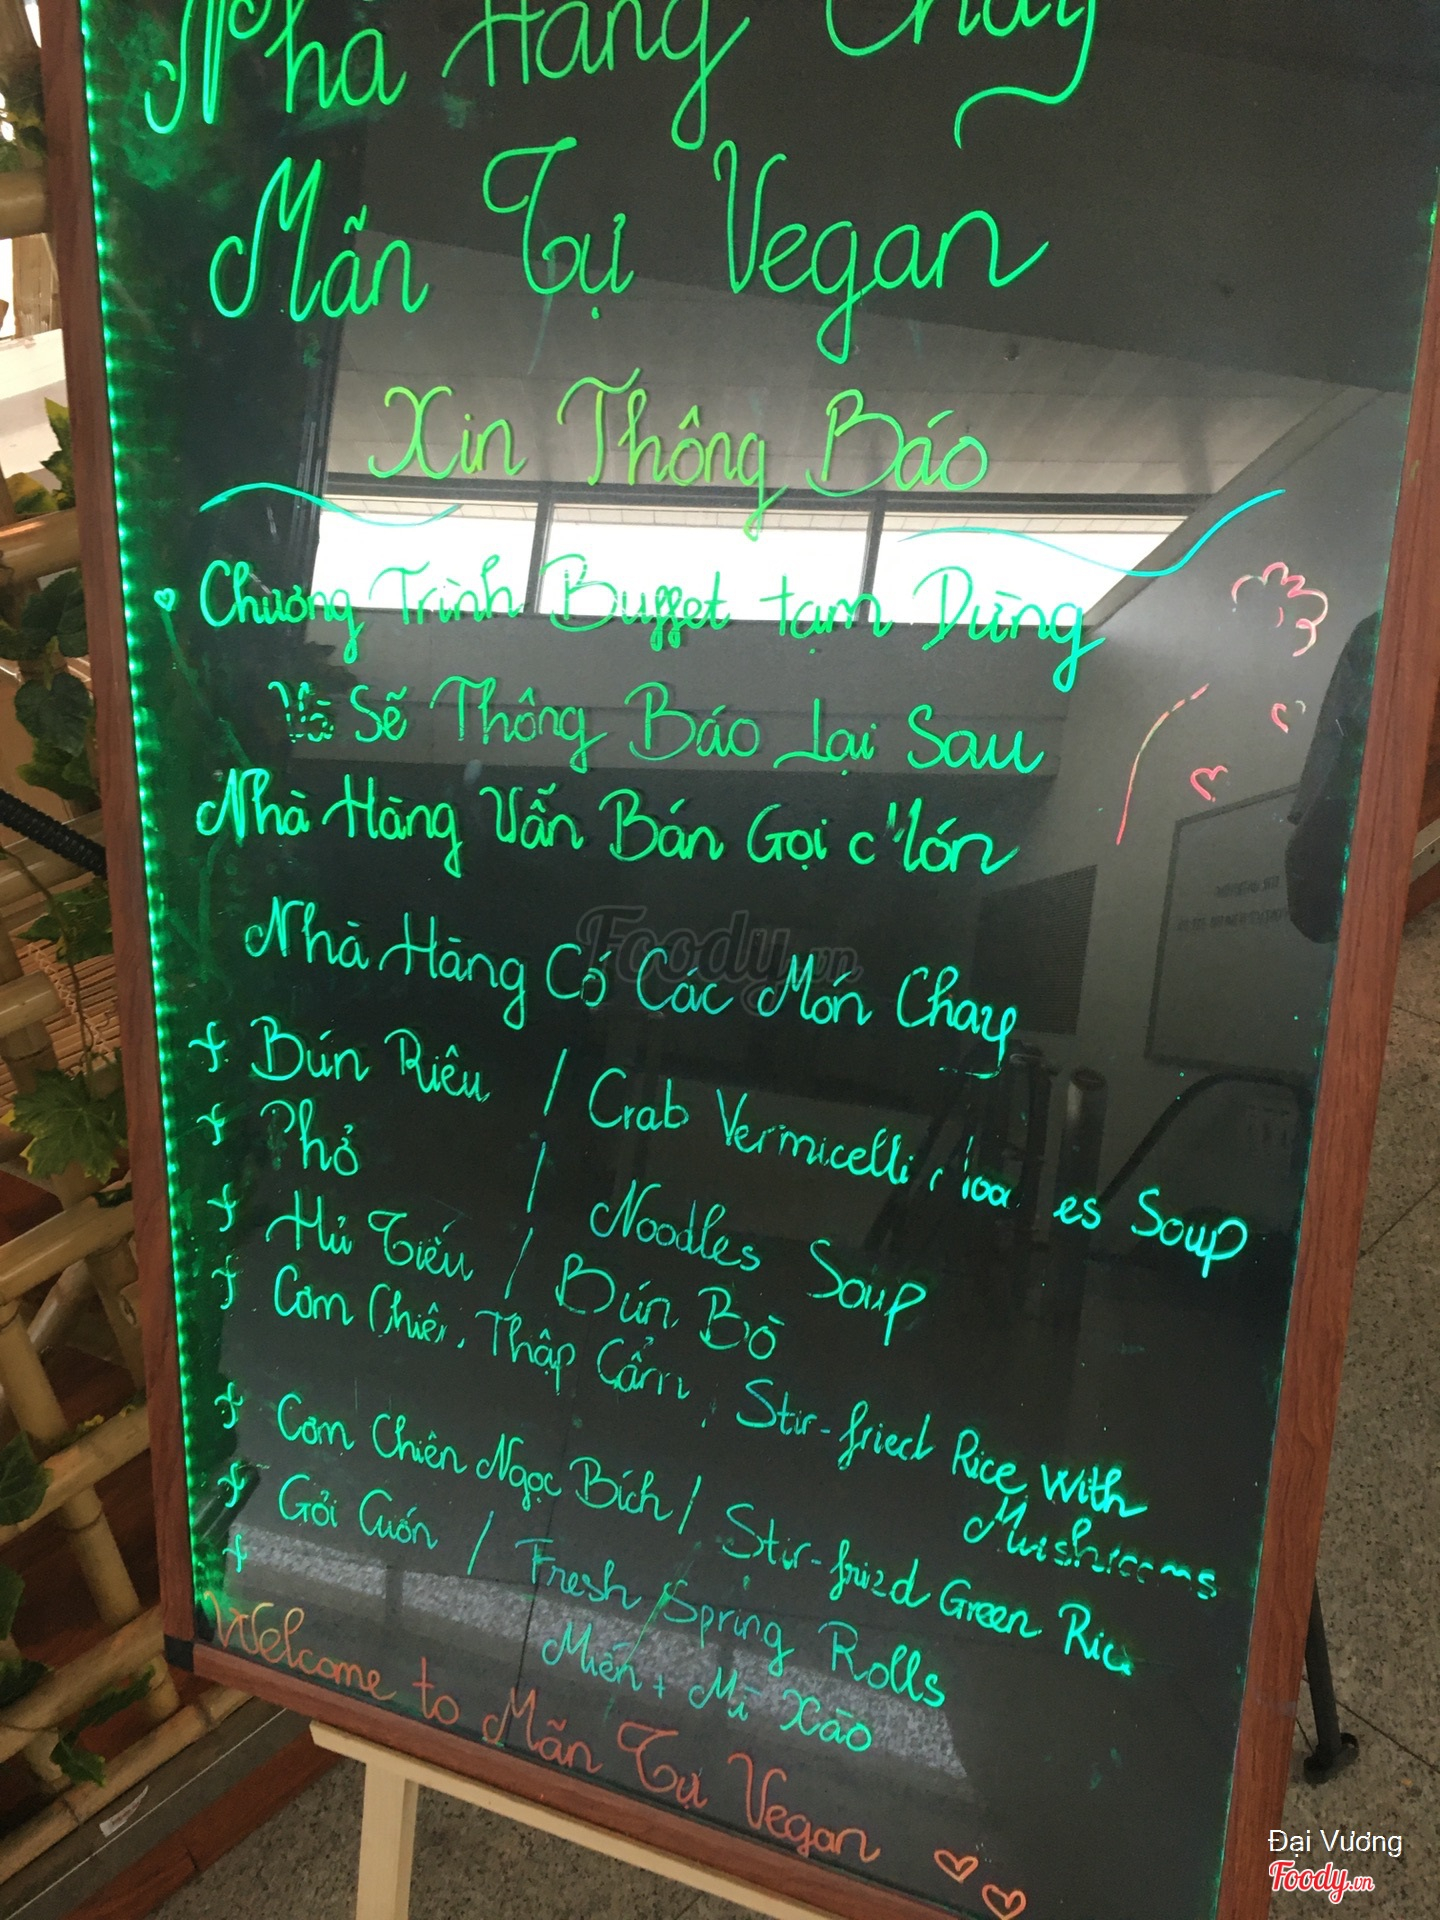 Nhà Hàng Chay
Mãn Tự Vegan
Xin Thông Báo
Chương Trình Buffet tạm Dừng
Và Sẽ Thông Báo Lại Sau
Nhà Hàng Vẫn Bán Gọi Món
Nhà Hàng Có Các Món Chay
Foody.vn
+ Bún Riêu / Crab Vermicelli Noodles Soup
+ Phở / Noodles Soup
+ Hủ Tiếu / Bún Bò
+ Cơm Chiên Thập Cẩm, Stir-fried Rice With
Mushrooms
+ Cơm Chiên Ngọc Bích / Stir-fried Green Rice
+ Gỏi Cuốn / Fresh Spring Rolls
+ Miến + Mì Xào
Welcome to Mãn Tự Vegan
Đại Vương
Foody.vn